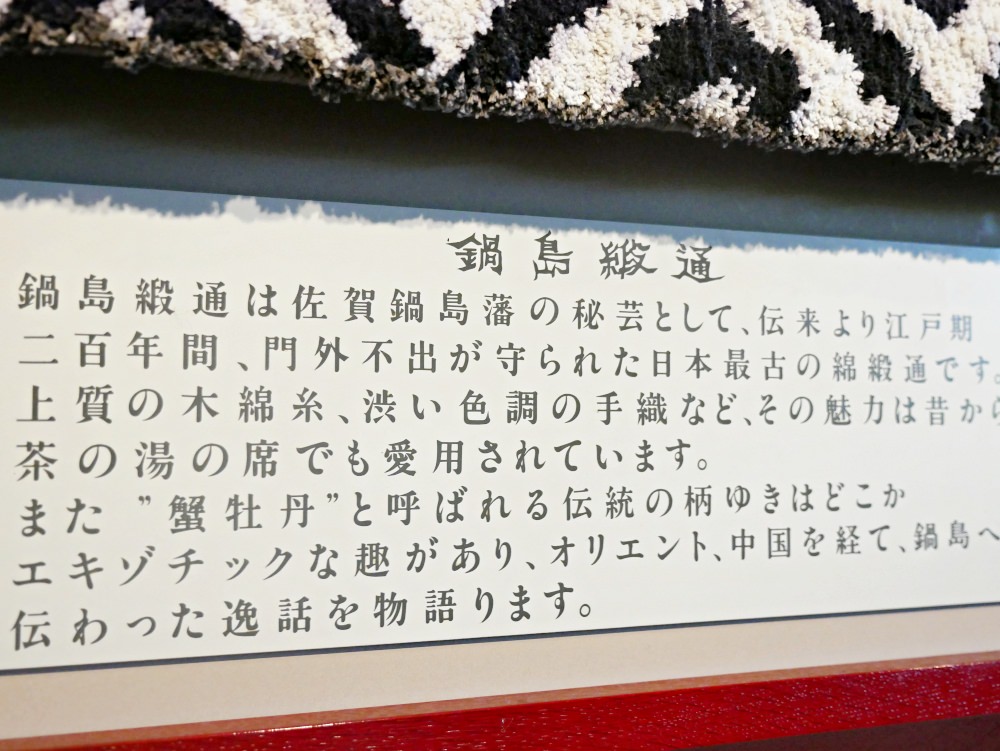 鍋島緞通
鍋島緞通は佐賀鍋島藩の秘芸として、伝来より江戸期
二百年間、門外不出が守られた日本最古の綿緞通です。
上質の木綿糸、渋い色調の手織など、その魅力は昔から
茶の湯の席でも愛用されています。
また ”蟹牡丹”と呼ばれる伝統の柄ゆきはどこか
エキゾチックな趣があり、オリエント、中国を経て、鍋島へ
伝わった逸話を物語ります。